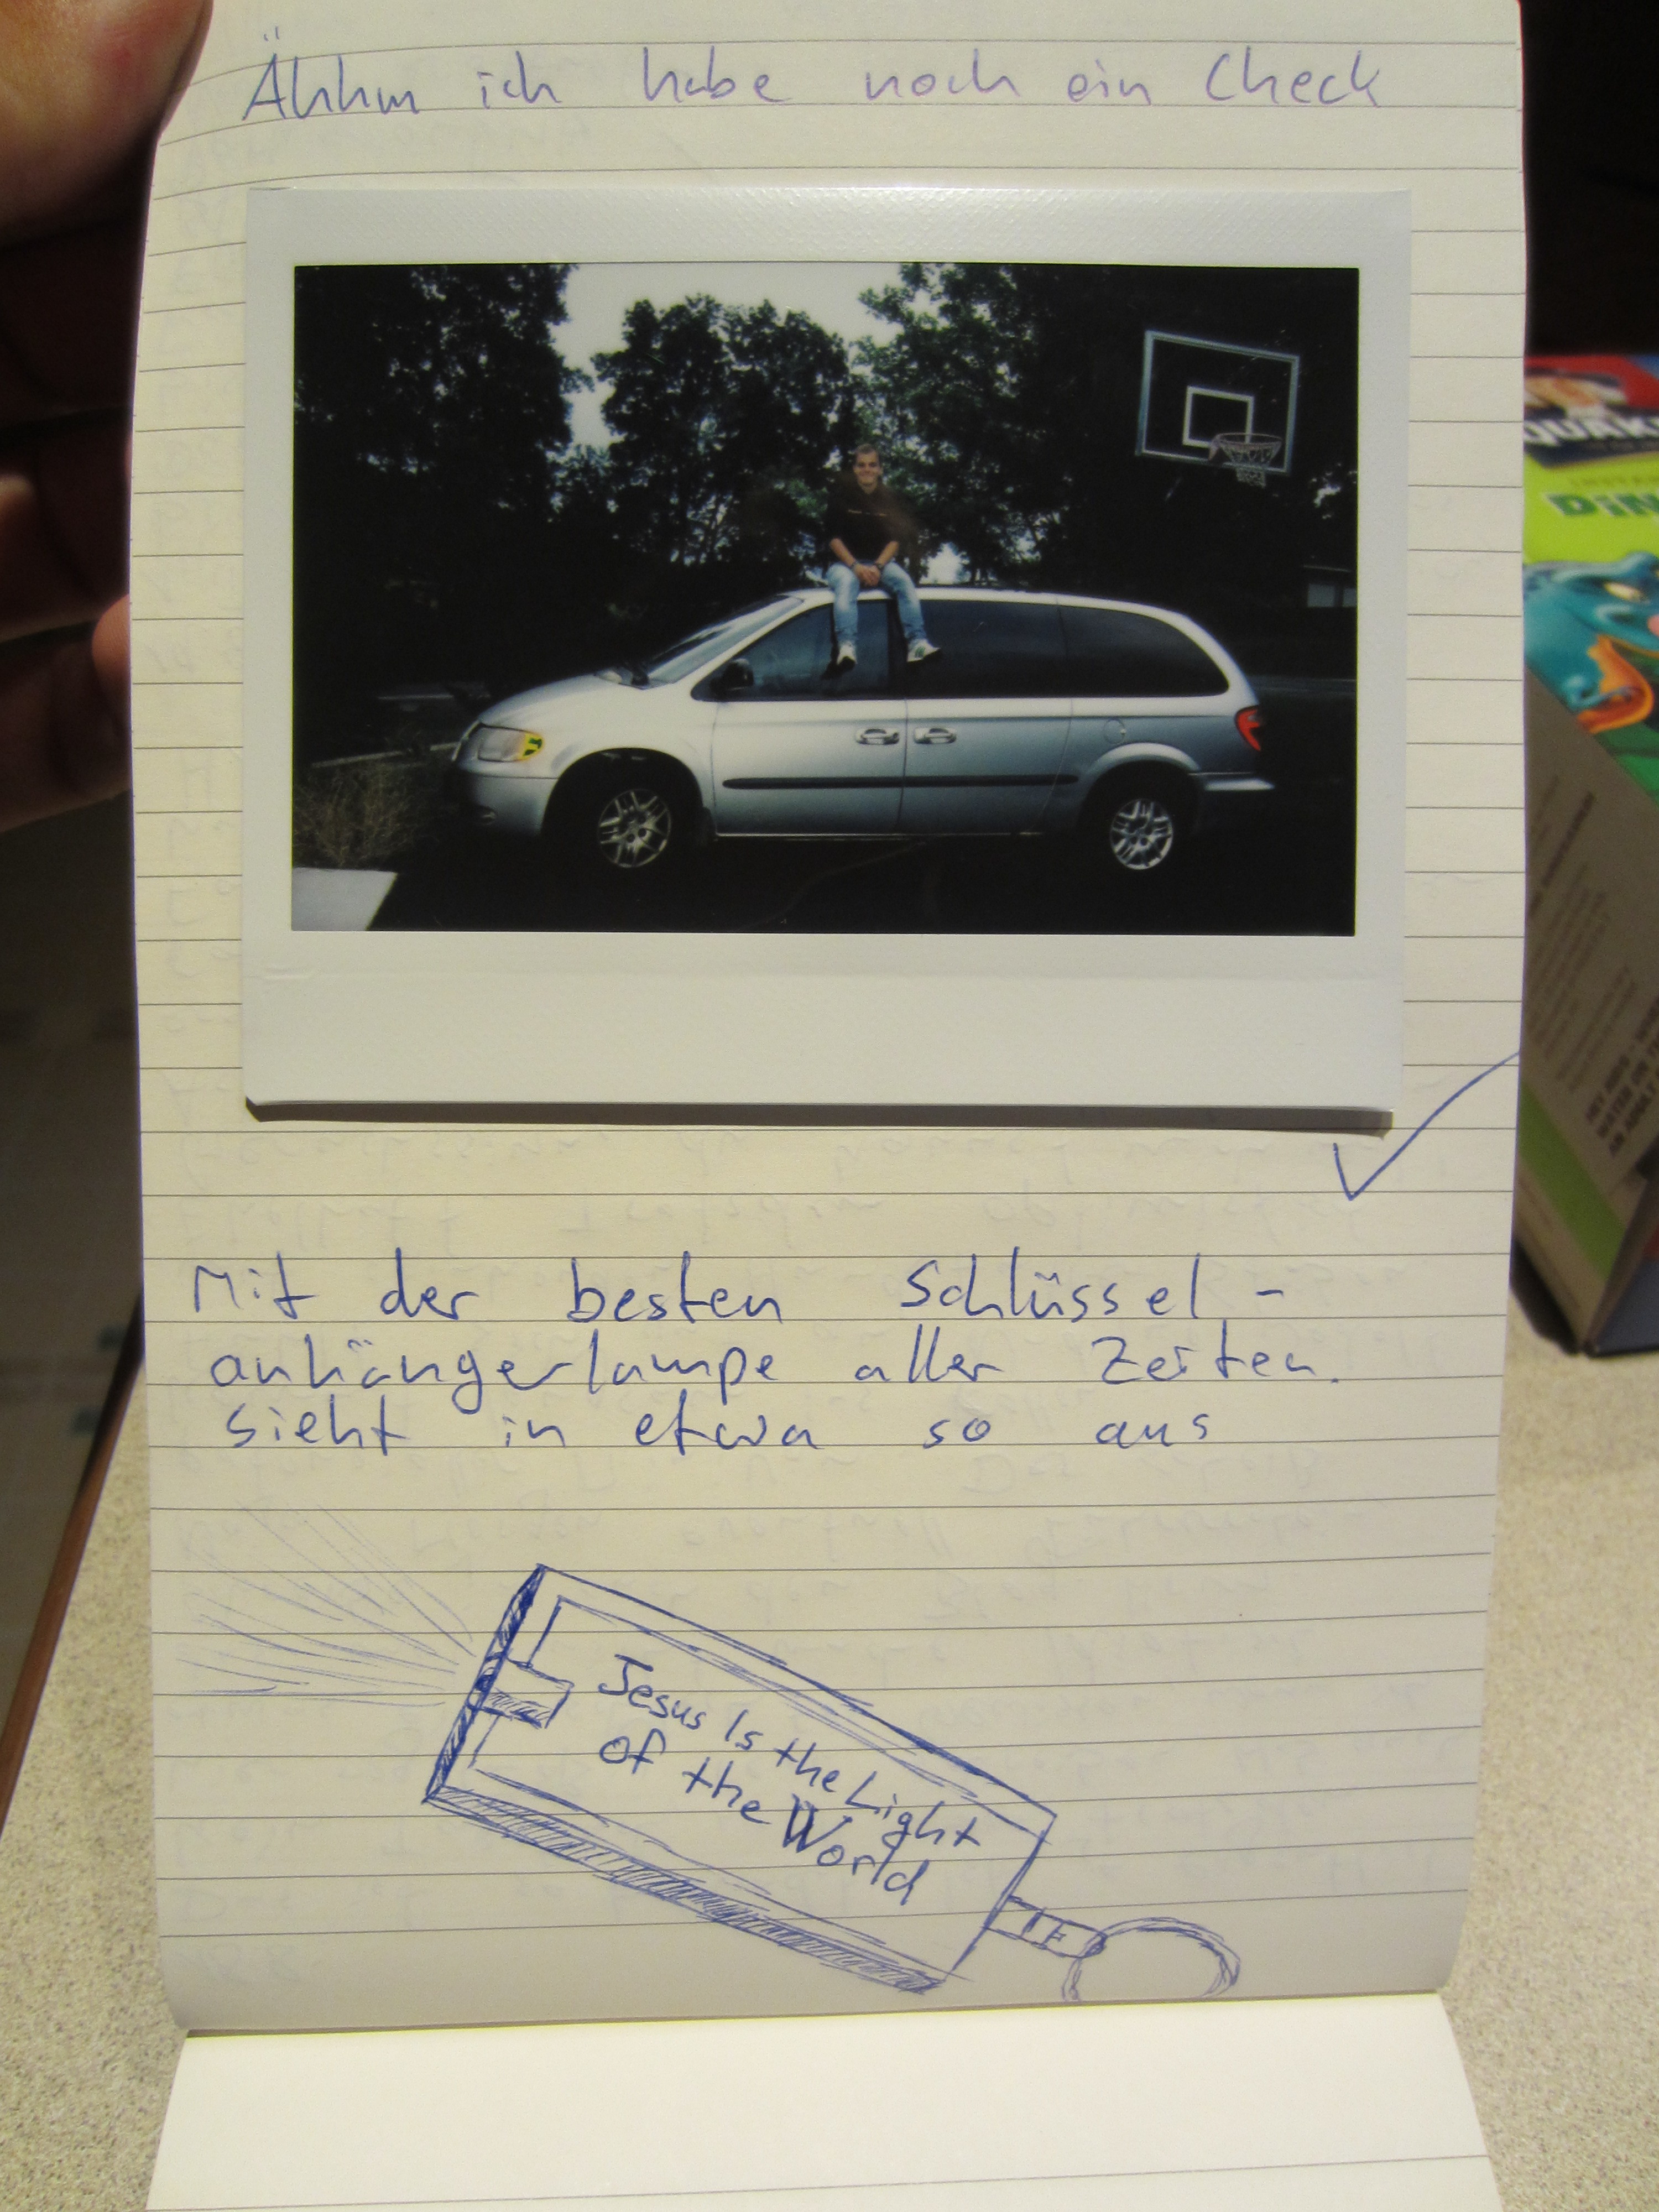 Ähhm ich habe noch ein Check
Mit der besten Schlüssel-
anhängerlampe aller Zeiten.
sieht in etwa so aus
Jesus Is the Light
of the World